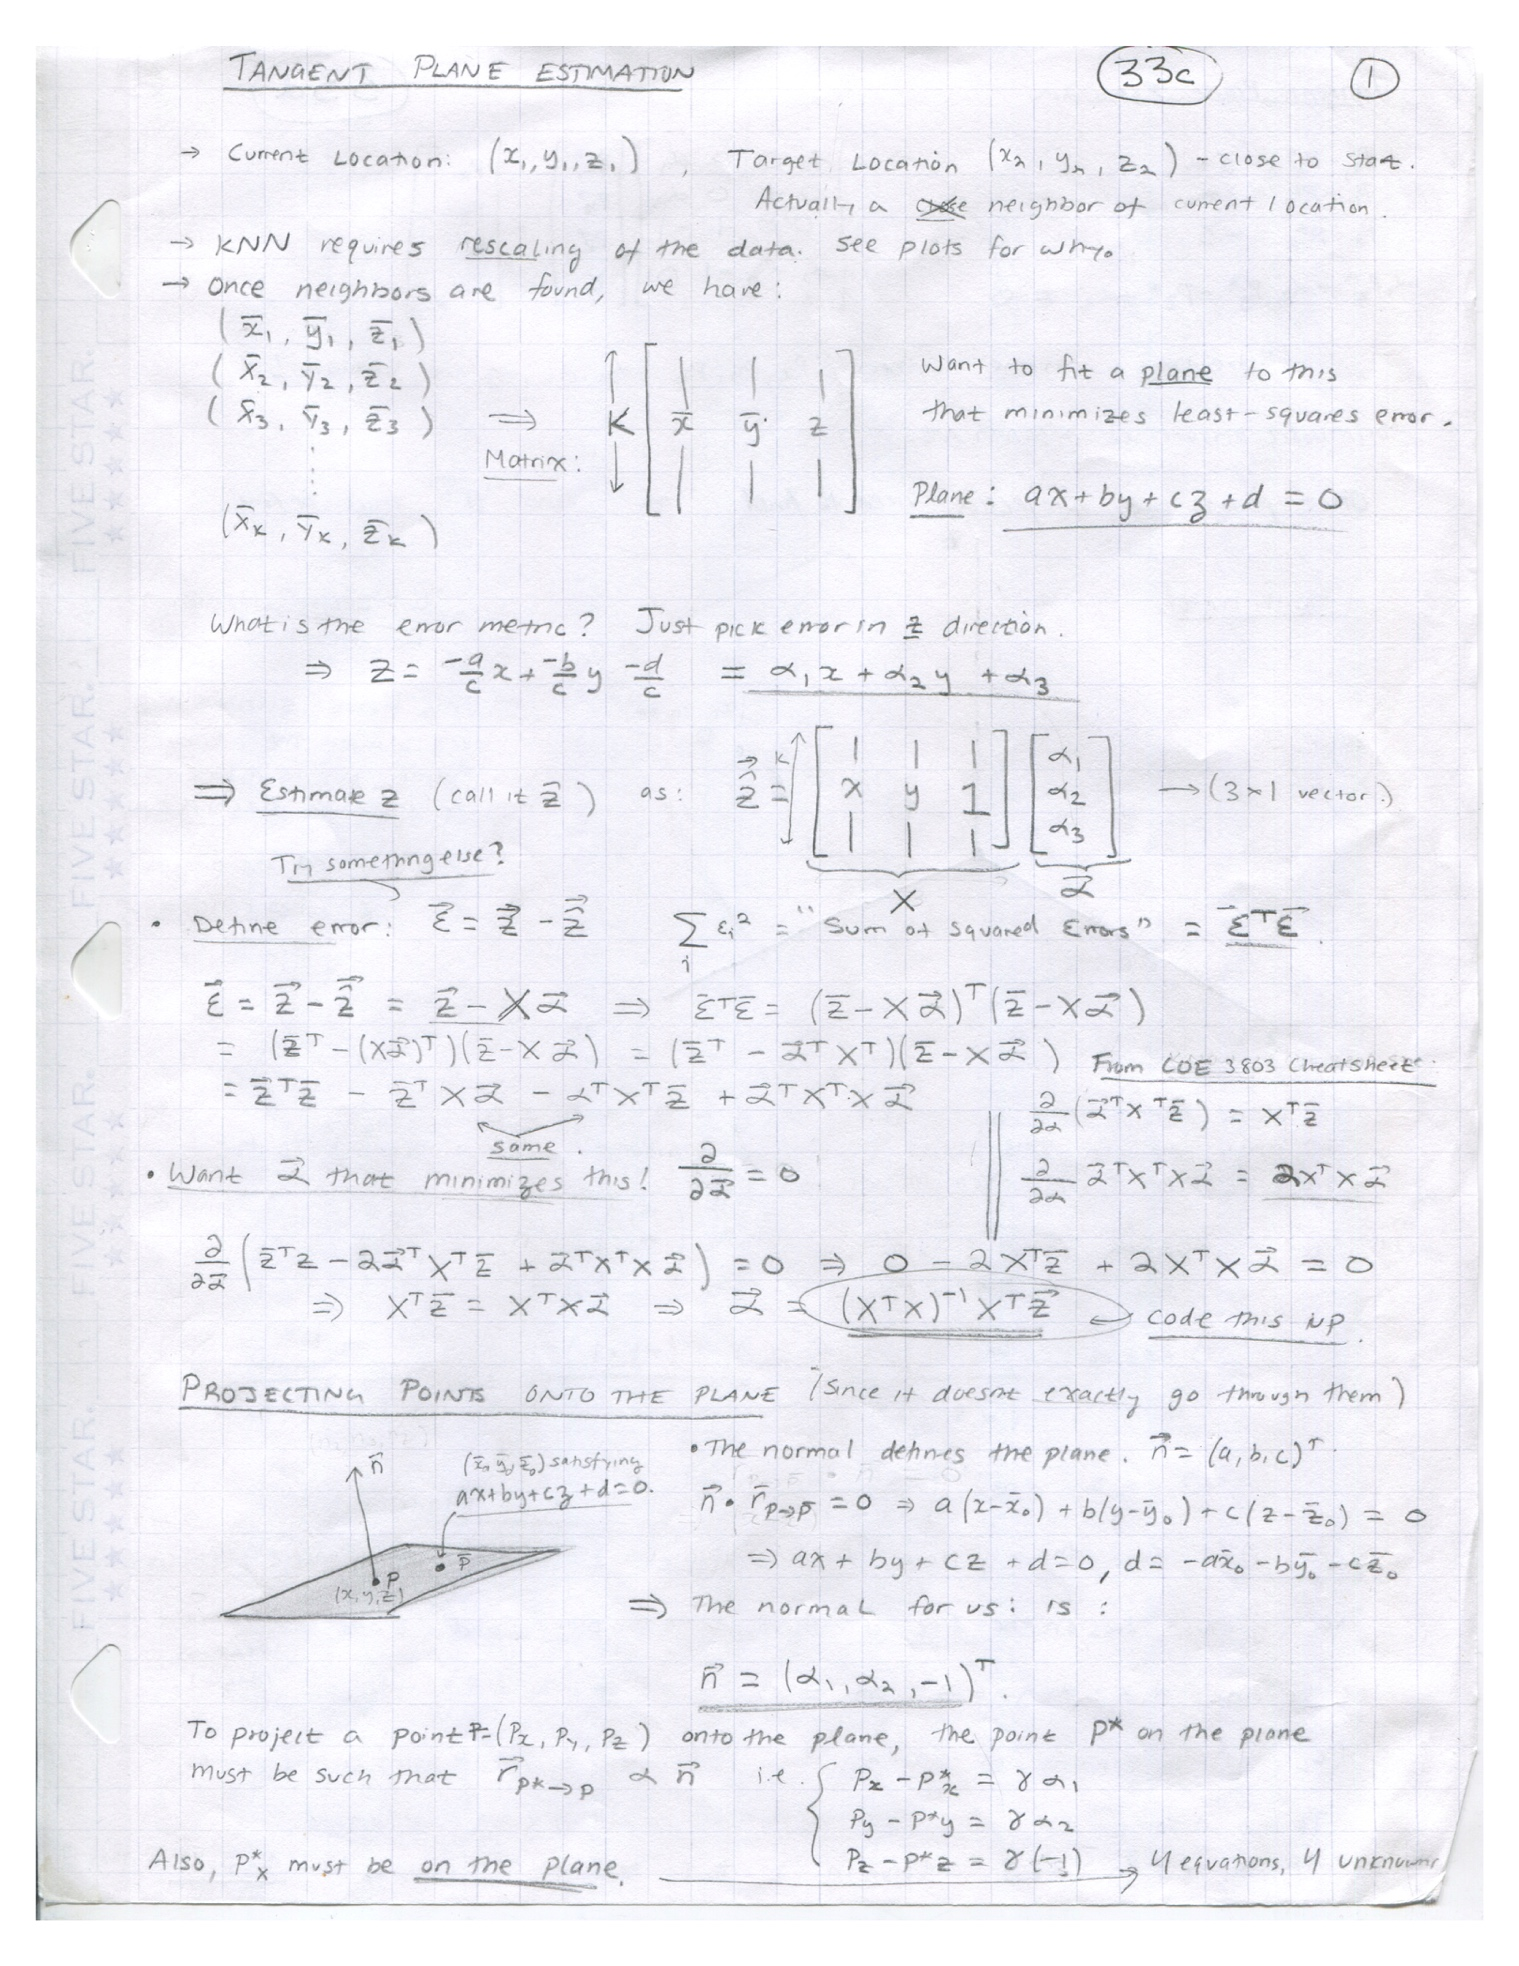 TANGENT PLANE ESTIMATION 33c 1
→ Current Location: (x₁, y₁, z₁) , Target Location (x₂, y₂, z₂) - close to start.
Actually a neighbor of current location.
→ KNN requires rescaling of the data. See plots for why.
→ Once neighbors are found, we have:
(x̄₁, ȳ₁, z̄₁)
(x̄₂, ȳ₂, z̄₂)
(x̄₃, ȳ₃, z̄₃) ⇒ Matrix: K [ x̄ ȳ z ]
(x̄ₖ, ȳₖ, z̄ₖ)
Want to fit a plane to this
that minimizes least-squares error.
Plane: ax+by+cz+d = 0
What is the error metric? Just pick error in z direction.
⇒ z = -a/c x + -b/c y -d/c = α₁x + α₂y + α₃
⇒ Estimate z (call it ẑ) as: ẑ = K [ x y 1 ] [ α₁ α₂ α₃ ] → (3×1 vector.)
X α⃗
Try something else?
• Define error: ε⃗ = z⃗ - ẑ ∑ᵢ εᵢ² = "Sum of squared Errors" = ε⃗ᵀε⃗.
ε⃗ = z⃗ - ẑ = z⃗ - Xα⃗ ⇒ ε̄ᵀε̄ = (z̄ - Xα⃗)ᵀ(z̄ - Xα⃗)
= (z̄ᵀ - (Xα⃗)ᵀ)(z̄ - Xα⃗) = (z̄ᵀ - α⃗ᵀXᵀ)(z̄ - Xα⃗)
= z̄ᵀz̄ - z̄ᵀXα⃗ - αᵀXᵀz̄ + α⃗ᵀXᵀXα⃗
same.
From COE 3803 Cheatsheet.
∂/∂α (α⃗ᵀXᵀz̄) = Xᵀz̄
∂/∂α α⃗ᵀXᵀXα⃗ = 2XᵀXα⃗
• Want α⃗ that minimizes this! ∂/∂α⃗ = 0
∂/∂α⃗ (z̄ᵀz - 2α⃗ᵀXᵀz̄ + α⃗ᵀXᵀXα⃗) = 0 ⇒ 0 - 2Xᵀz̄ + 2XᵀXα⃗ = 0
⇒ Xᵀz̄ = XᵀXα⃗ ⇒ α⃗ = (XᵀX)⁻¹Xᵀz̄ ← code this up.
PROJECTING POINTS ONTO THE PLANE (Since it doesnt exactly go through them)
n⃗
(x̄₀, ȳ₀, z̄₀) satisfying
ax+by+cz+d=0.
P
(x,y,z)
P̄
• The normal defines the plane. n⃗ = (a,b,c)ᵀ.
n⃗ • r̄ₚ→ₚ̄ = 0 ⇒ a(x-x̄₀) + b(y-ȳ₀) + c(z-z̄₀) = 0
⇒ ax + by + cz + d=0, d = -ax̄₀ -bȳ₀ -cz̄₀
⇒ The normal for us: is :
n⃗ = (α₁, α₂, -1)ᵀ.
To project a point P=(Px, Py, Pz) onto the plane, the point P* on the plane
must be such that r⃗ₚ*→ₚ α n⃗ i.e. { Px - P*x = γα₁
Py - P*y = γα₂
Pz - P*z = γ(-1)
Also, P*x must be on the plane. → 4 equations, 4 unknowns
FIVE STAR. FIVE STAR. FIVE STAR. FIVE STAR.